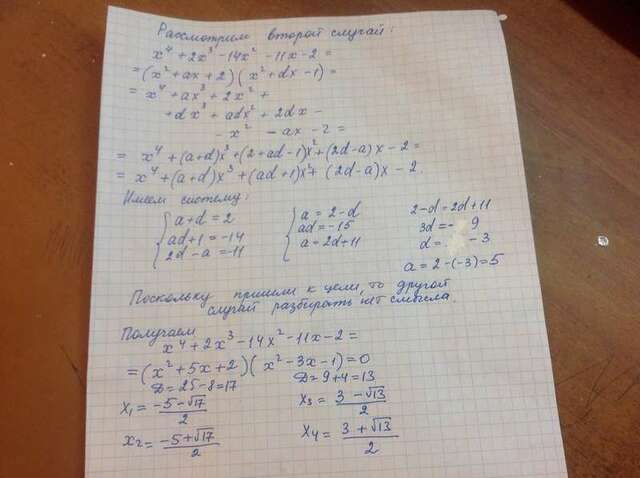 Рассмотрим второй случай:
x⁴ + 2x³ - 14x² - 11x - 2 =
= (x² + ax + 2)(x² + dx - 1) =
= x⁴ + ax³ + 2x² +
+ dx³ + adx² + 2dx -
- x² - ax - 2 =
= x⁴ + (a+d)x³ + (2+ad-1)x² + (2d-a)x - 2 =
= x⁴ + (a+d)x³ + (ad+1)x² + (2d-a)x - 2.
Имеем систему:
{ a+d=2 { a=2-d 2-d=2d+11
ad+1=-14 ad=-15 3d=-9
2d-a=-11 a=2d+11 d=-3
a=2-(-3)=5
Поскольку пришли к цели, то другой
случай разбирать нет смысла.
Получаем
x⁴ + 2x³ - 14x² - 11x - 2 =
= (x² + 5x + 2)(x² - 3x - 1) = 0
D = 25-8=17 D = 9+4=13
x₁ = (-5-√17)/2 x₃ = (3-√13)/2
x₂ = (-5+√17)/2 x₄ = (3+√13)/2